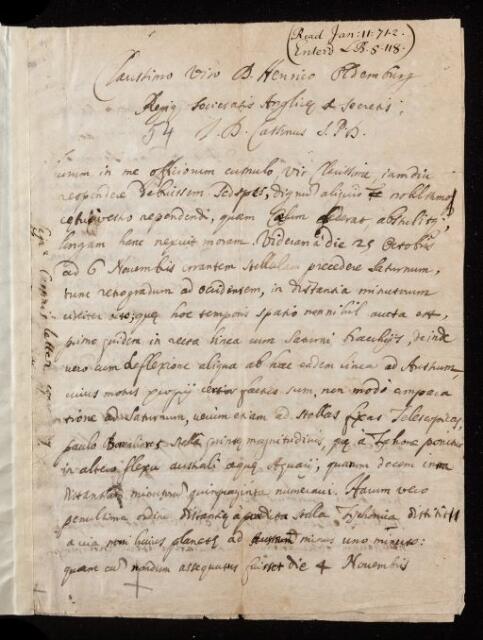 Read Jan: 11: 71/2.
Enterd L.B. 5. 118.
Clarissimo Viro D. Henrico Oldemburg
Regiæ Societatis Anglicæ à Secretis;
54 J. D. Cassinus S. P. D.
tuum in me officiorum cumulo, Vir Clarissime, iamdiu
respondere debuissem sed spes, dignum aliquid
vestro rependendi, quam cælum
longam hanc nexuit moram. Videram à die 25 Octobris
ad 6 Novembris errantem stellulam præcedere Saturnum,
tunc retrogradum ad occidentem, in distantia minutorum
quæ hoc temporis spatio nonnihil aucta est,
primo quidem in recta linea cum Saturni brachijs, deinde
vero cum deflexione aliqua ab hac eadem linea ad Austrum,
cuius motus proprij certior factus sum, non modo compara
tione ad Saturnum, verum etiam ad stellas fixas Telescopicas,
paulo stella quintæ magnitudinis, quæ à Tychone ponitur
in altero flexu australi aquæ Aquarij, quarum decem intra
distantiam minutorum quinquaginta numeravi. Harum vero
penultima ordine distantiæ à prædicta stella Tychonica distitit
a via huius planetæ ad minus uno minuto:
quam cum nondum assequutus fuisset die 4 Novembris
letter